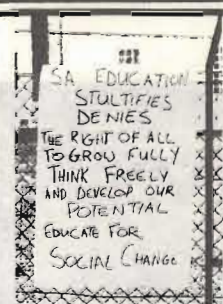 SA EDUCATION
STULTIFIES
DENIES
THE RIGHT OF ALL
TO GROW FULLY
THINK FREELY
AND DEVELOP OUR
POTENTIAL
EDUCATE FOR
SOCIAL CHANGE